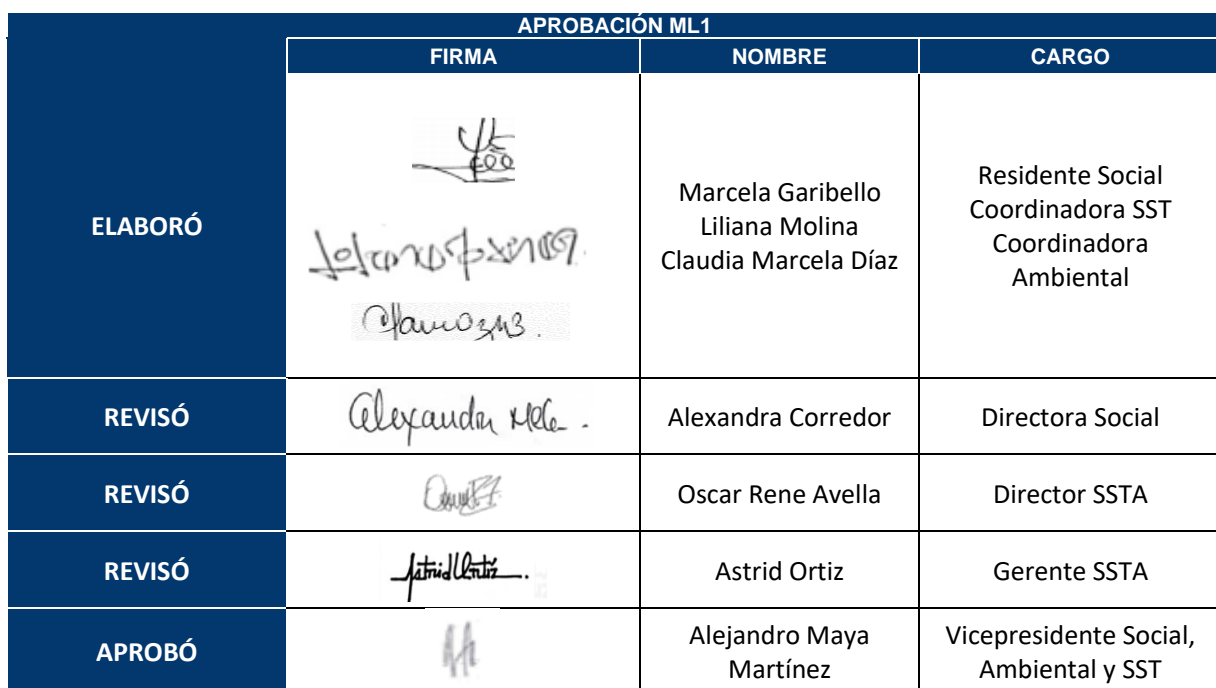 APROBACIÓN ML1
FIRMA NOMBRE CARGO
ELABORÓ
Marcela Garibello
Liliana Molina
Claudia Marcela Díaz
Residente Social
Coordinadora SST
Coordinadora
Ambiental
REVISÓ
Alexandra Corredor
Directora Social
REVISÓ
Oscar Rene Avella
Director SSTA
REVISÓ
Astrid Ortiz.
Astrid Ortiz
Gerente SSTA
APROBÓ
Alejandro Maya
Martínez
Vicepresidente Social,
Ambiental y SST